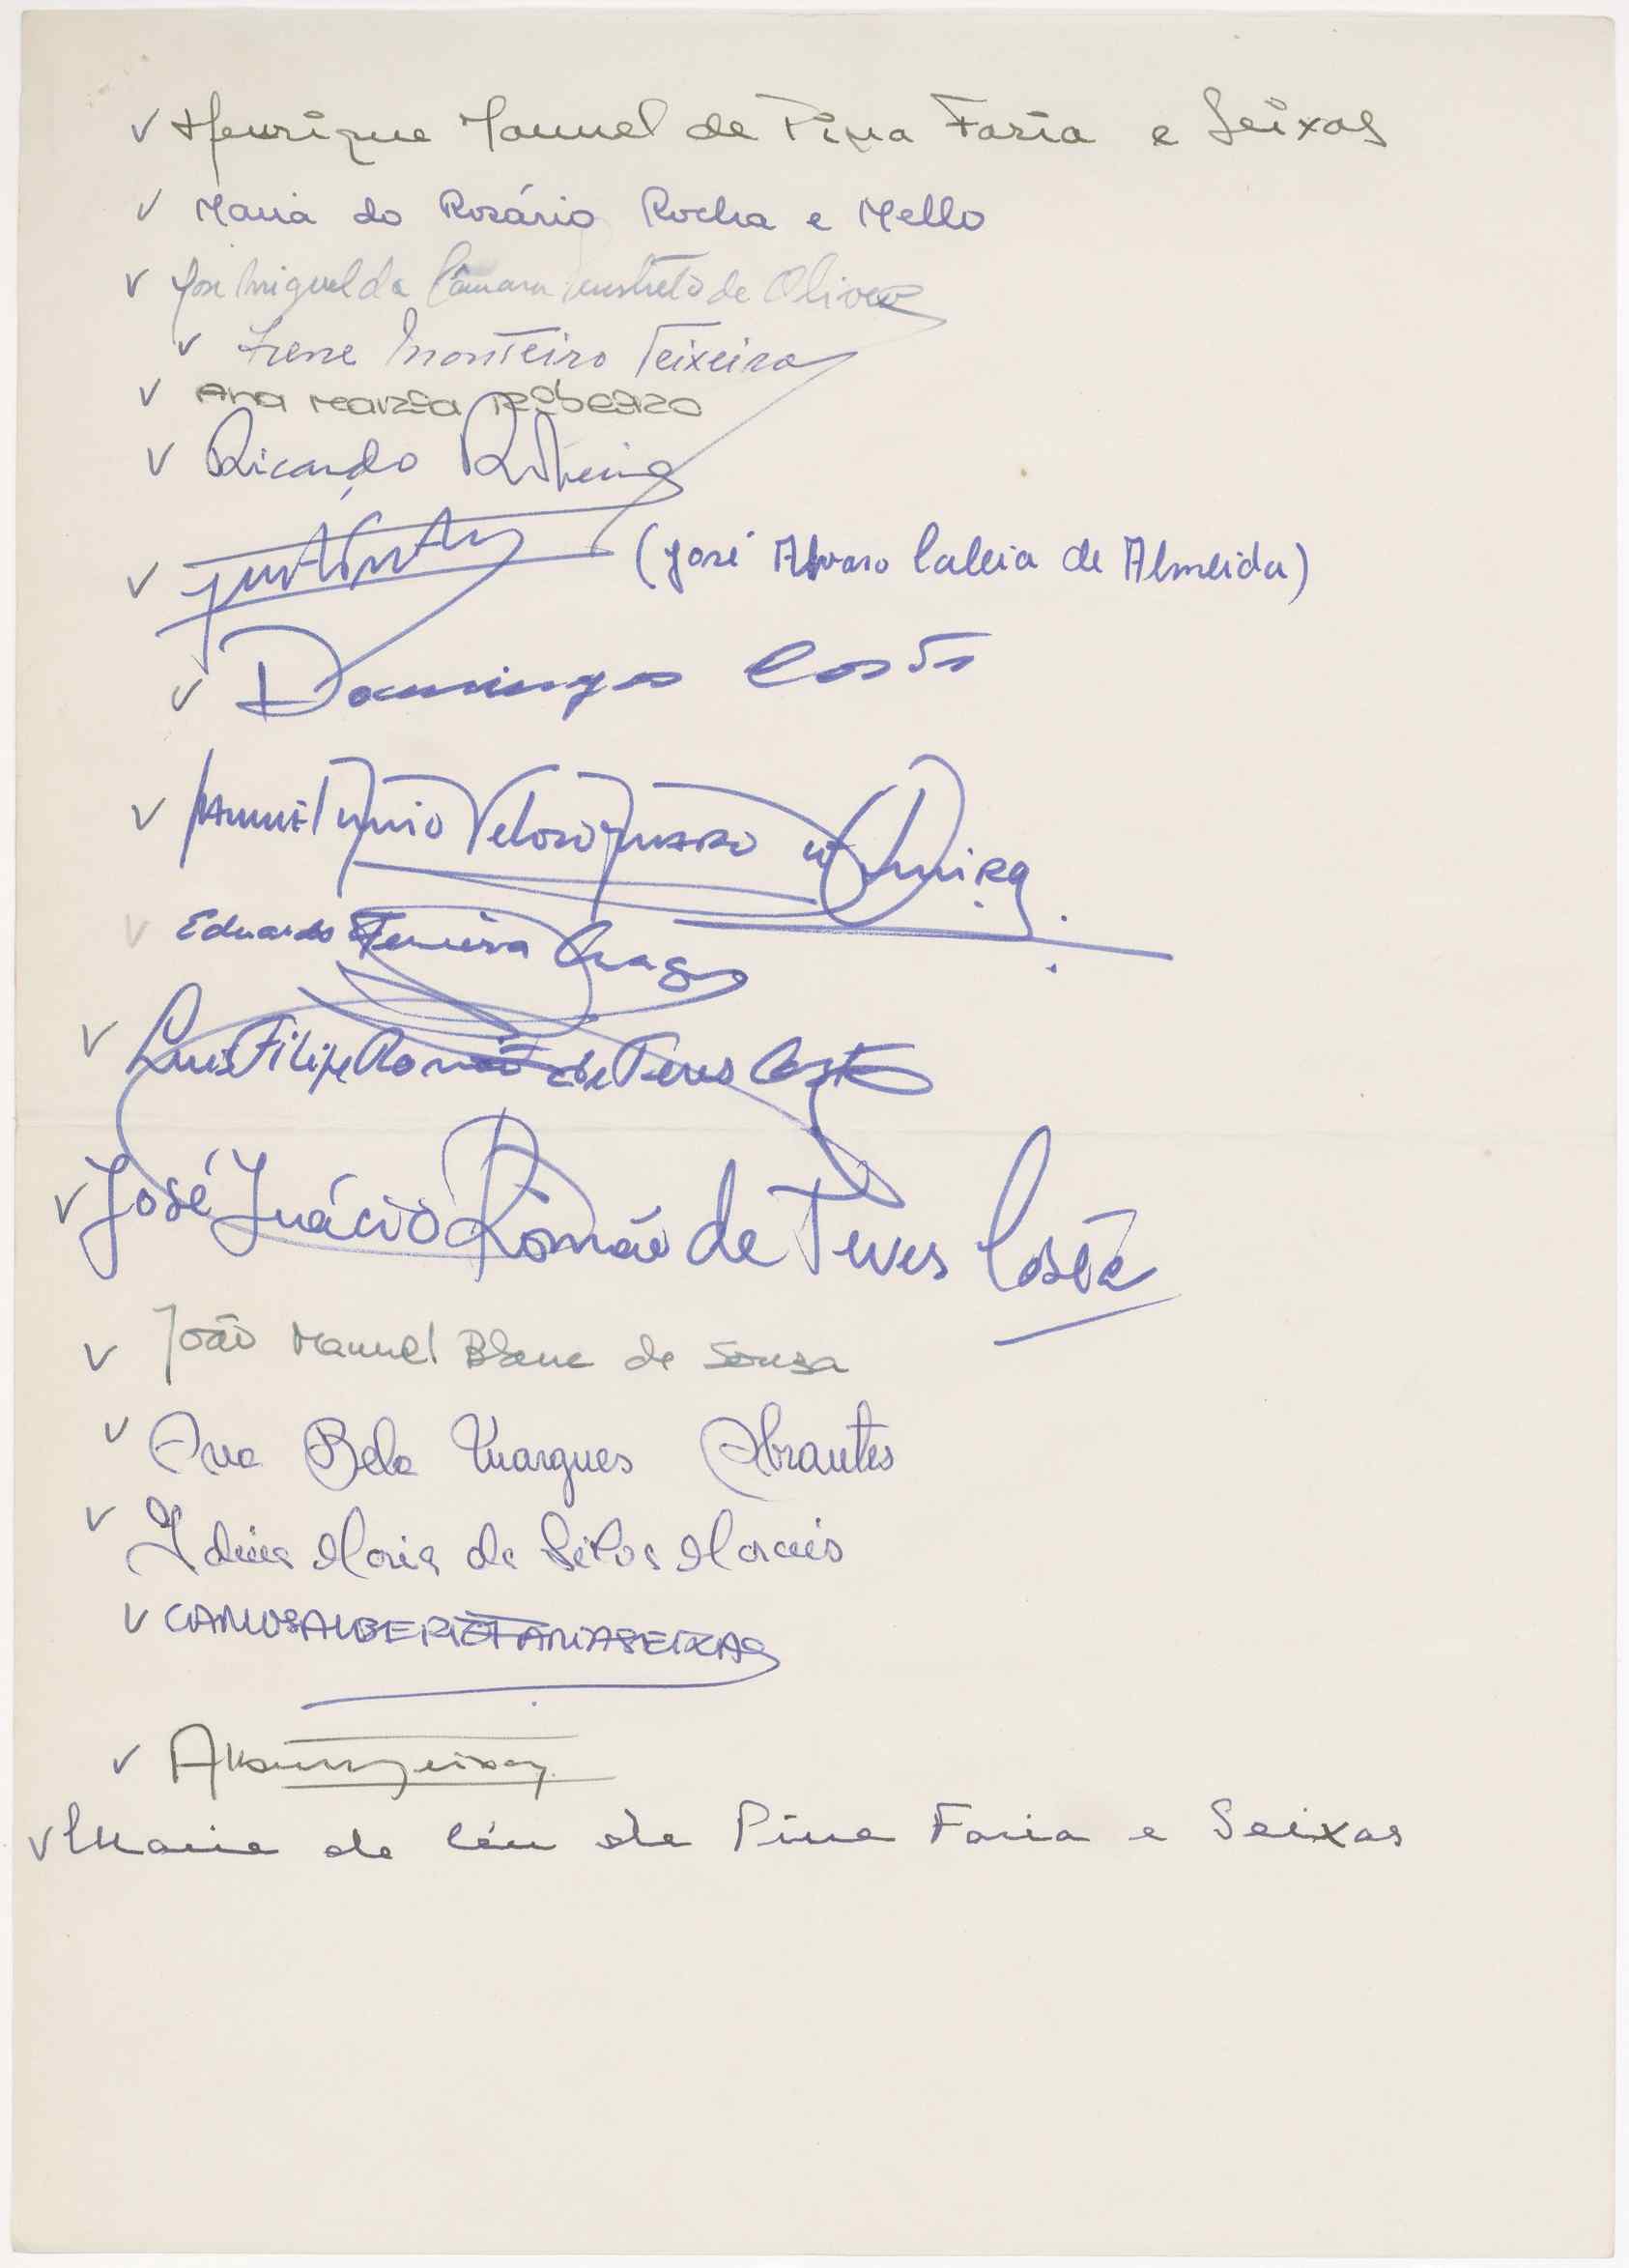 Henrique Manuel de Pina Faria e Seixas
Maria do Rosário Rocha e Mello
José Miguel da Câmara de Oliveira
Irene Monteiro Teixeira
Ana Maria Ribeiro
Ricardo Ribeiro
(José Alvaro Caleia de Almeida)
Domingos Costa
Manuel Veloso
Eduardo Ferreira
Luis Filipe Romão de Teves Costa
José Inácio Romão de Teves Costa
João Manuel Blanc de Sousa
Ana Bela Marques Abrantes
Maria da Silva Morais
CARLOS ALBERTO FARIA SEIXAS
Maria do Céu de Pina Faria e Seixas